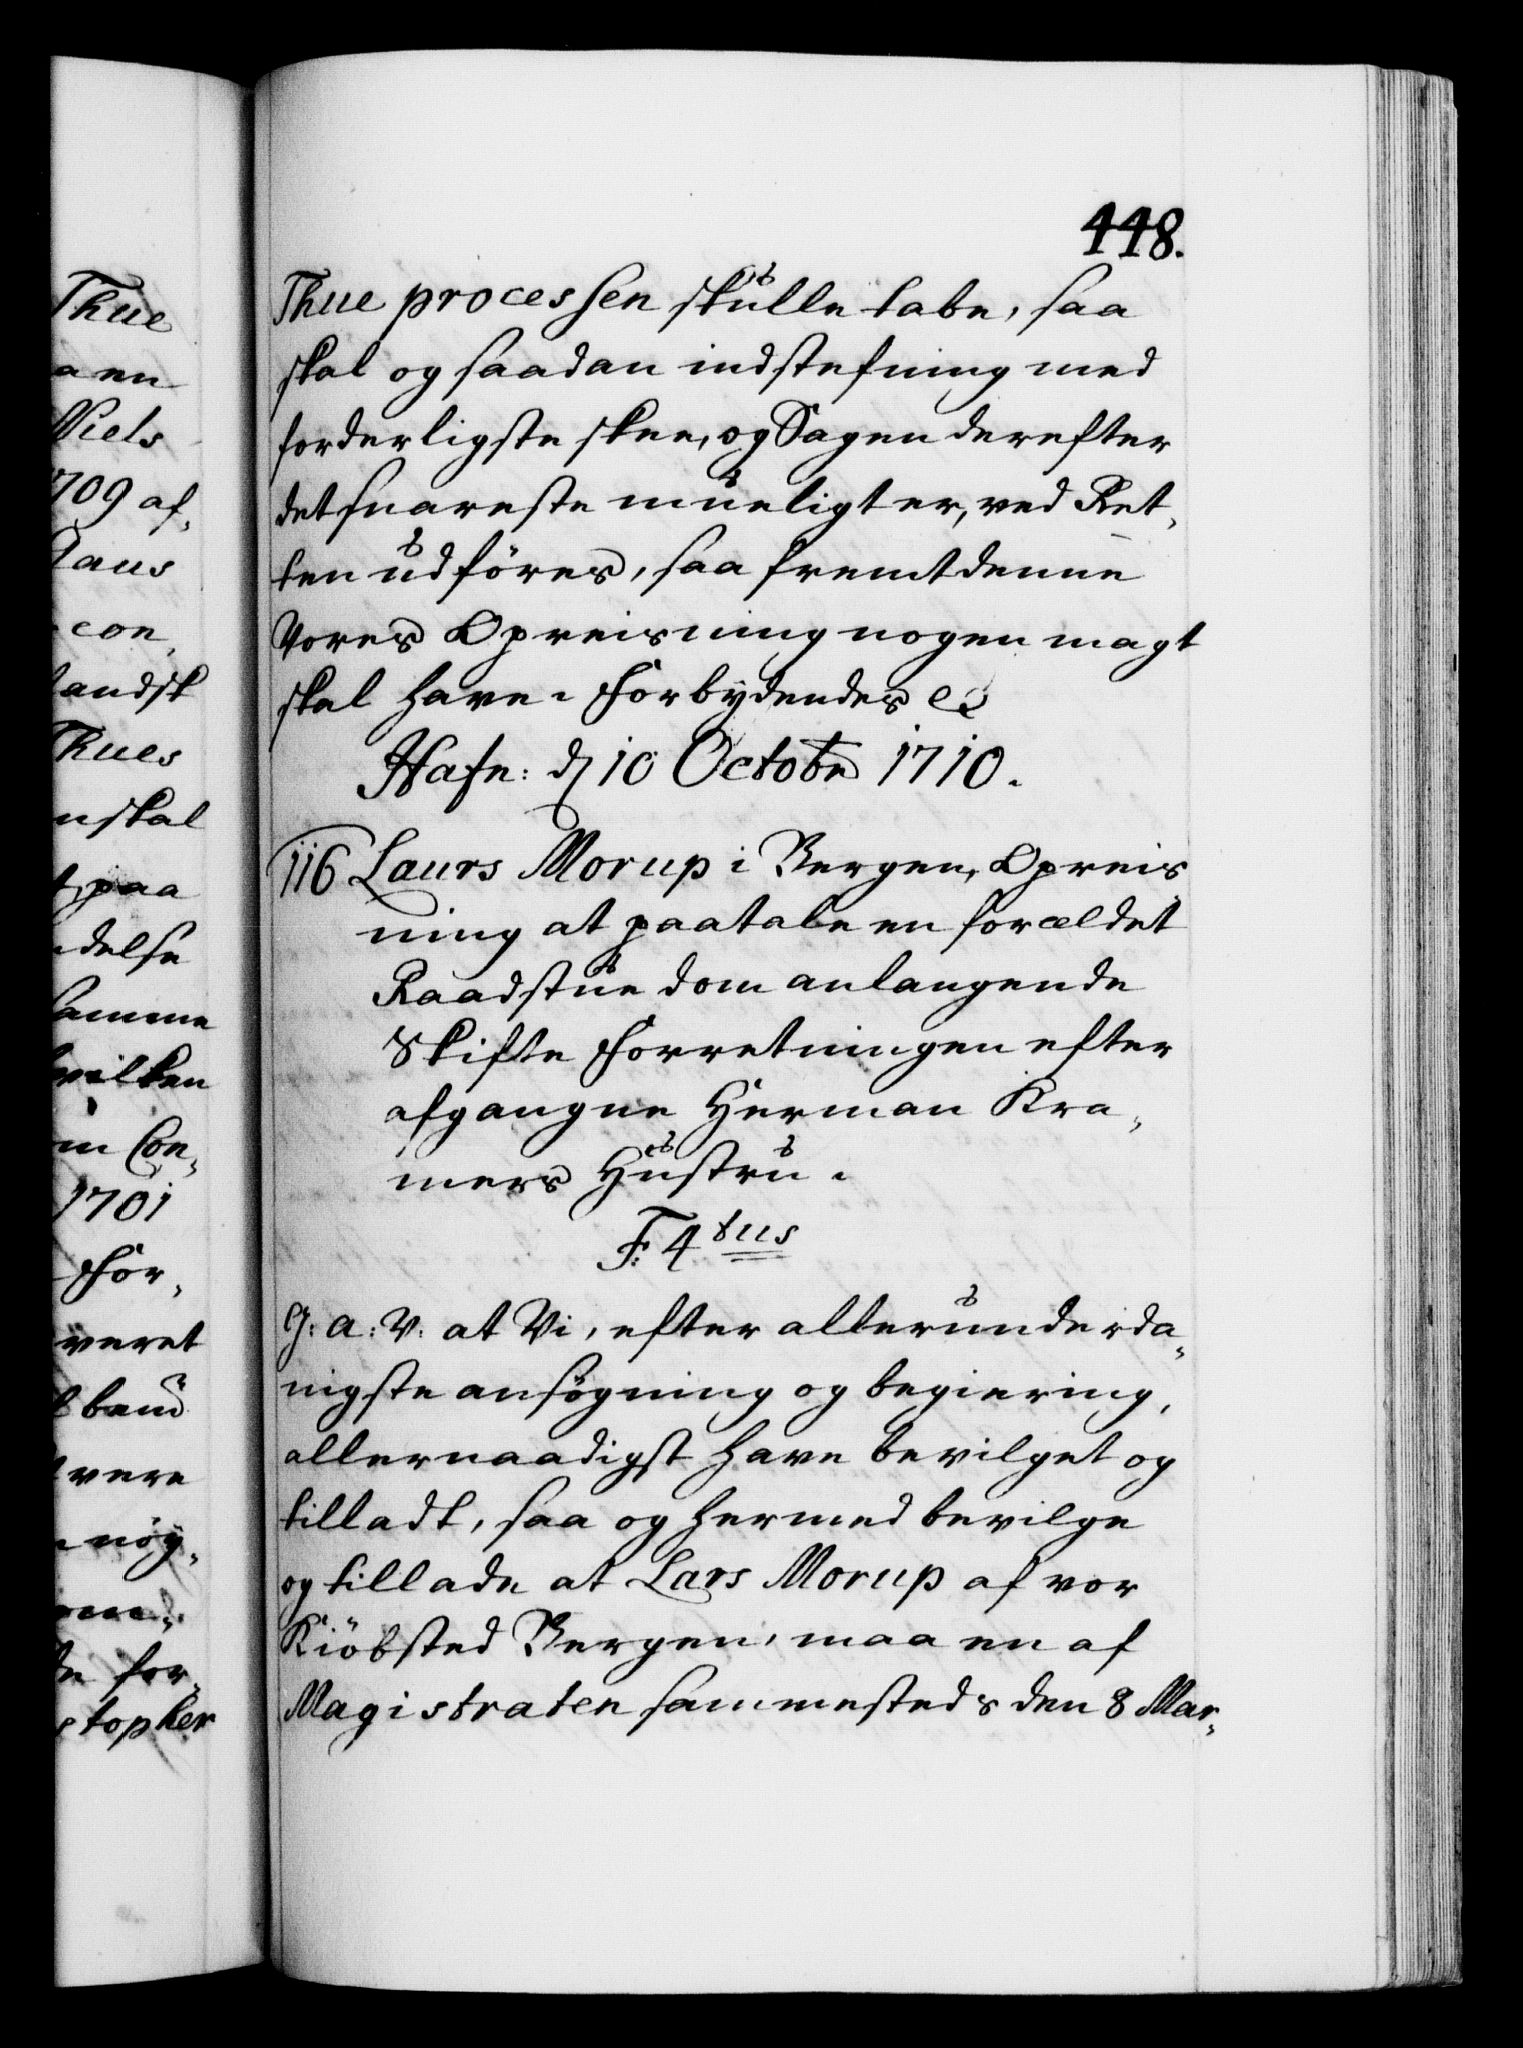 448.
Thue processen skulle tabe, saa
skal og saadan indstefning med
forderligste skee, og Sagen derefter
det snareste mueligt er, ved Ret,
ten udföres, saa fremt denne
Vores Opreisning nogen magt
skal have. Forbydendes
Hafn: d 10 Octobr 1710.
116 Laurs Morup i Bergen, Opreis
ning at paatale en forældet
Raadstue dom anlangende
Skifte Forretningen efter
afgangne Herman Kra,
mers Hustru.
F: 4tus
G: a: V: at Vi, efter allerunderda,
nigste ansögning og begiering,
allernaadigst have bevilget og
tilladt, saa og hermed bevilge
og tillade at Lars Morup af vor
Kiöbsted Bergen, maa en af
Magistraten sammesteds den 8 Mar,
Thue
aen
Niels
1709 af,
con,
landsk
Thues
skal
paa
delse
samme
hvilken
m Con,
1701
For,
veret
vere
nög,
for,
stopher